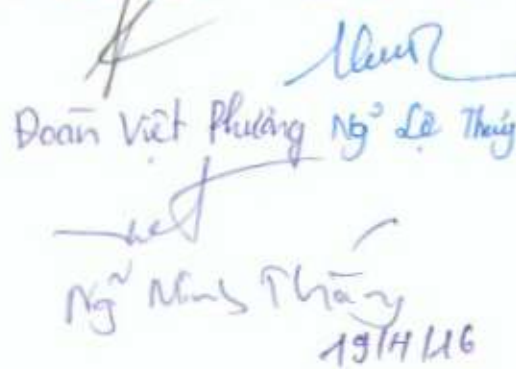 Đoàn Việt Phương Ngô Lệ Thủy
Ngỹ Minh Thắng
19/4/16